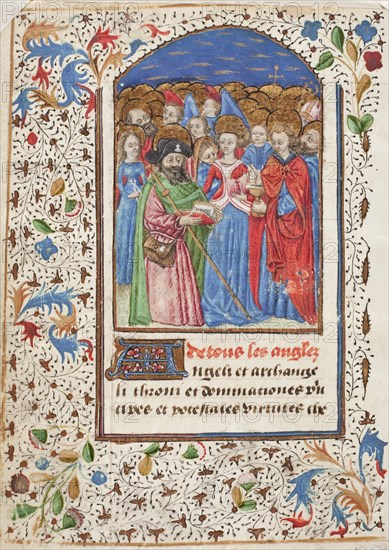 De tous les anglez
Angeli et archange
li throni et dominationes pri
cipes et potestates virtutes ce